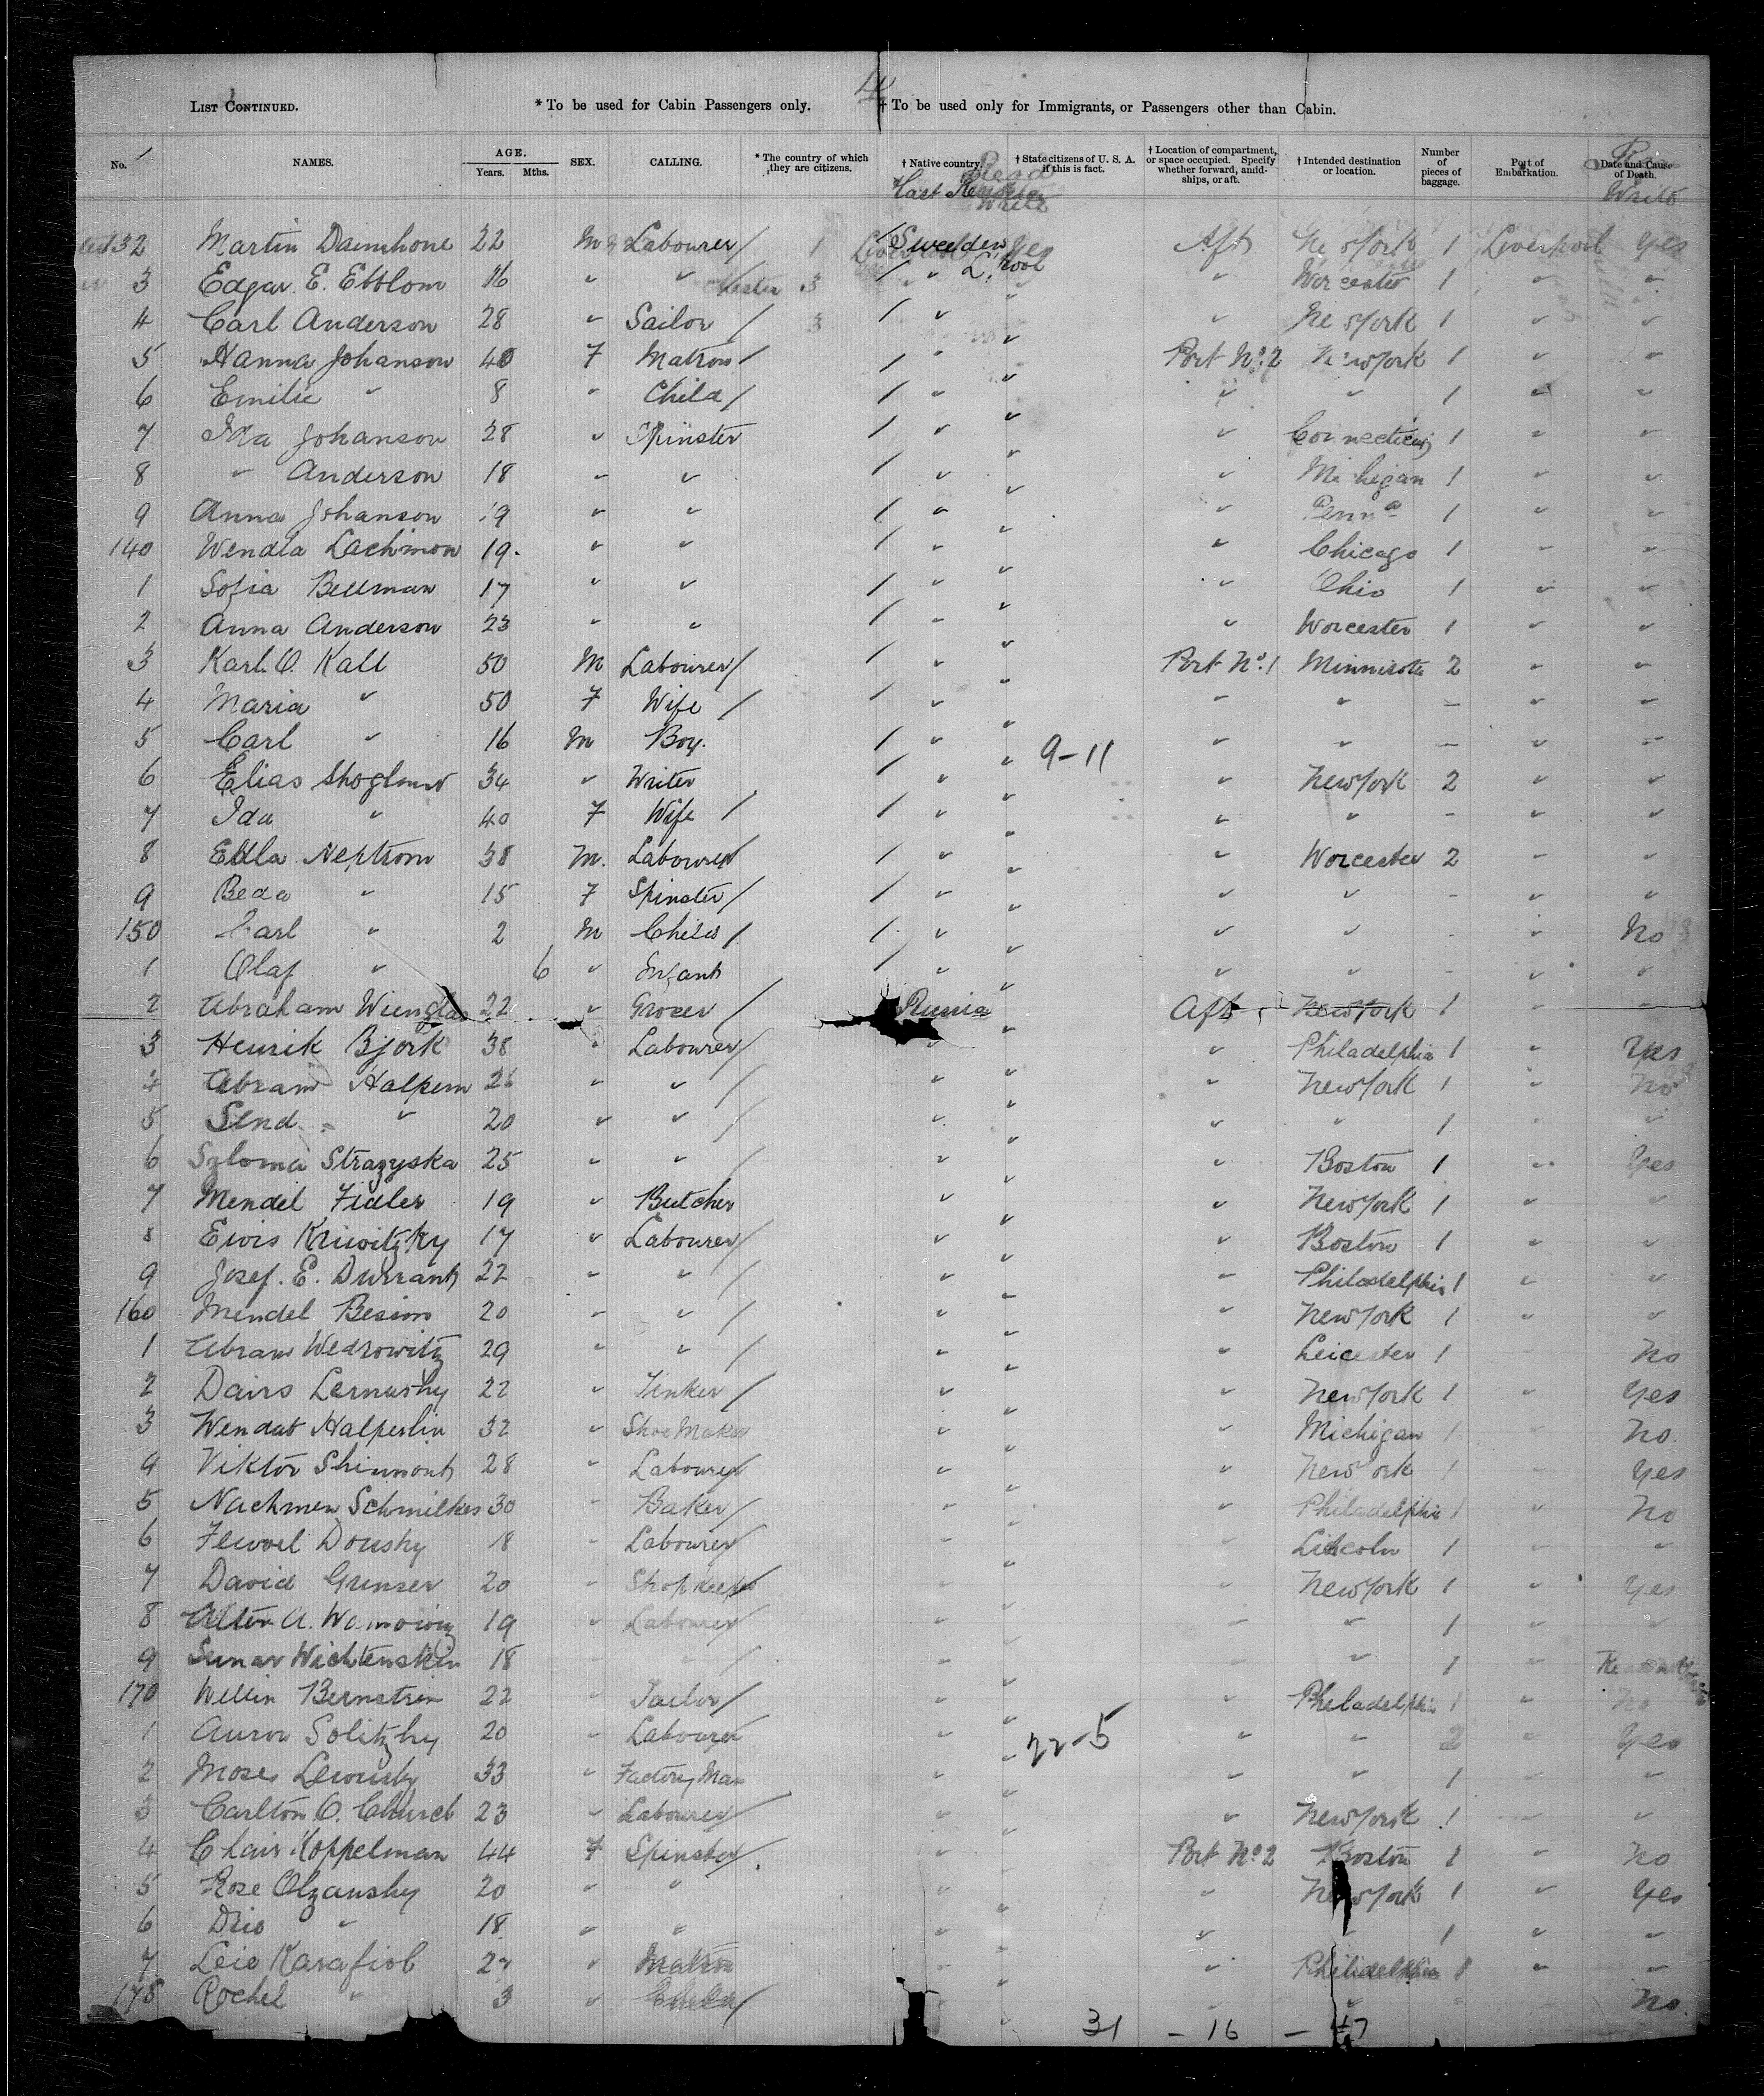 4
List Continued. * To be used for Cabin Passengers only. † To be used only for Immigrants, or Passengers other than Cabin.
No. NAMES. AGE. Years. Mths. SEX. CALLING. * The country of which they are citizens. † Native country. † State citizens of U. S. A. if this is fact. † Location of compartment, or space occupied. Specify whether forward, amidships, or aft. † Intended destination or location. Number of pieces of baggage. Port of Embarkation. Date and Cause of Death.
Write
32 Martin 22 M Labourer / Sweden Aft New York 1 Liverpool Yes
3 Edgar. E. Ebblom 16 " " / / " L.pool " Worcester 1 " "
4 Carl Anderson 28 " Sailor / / " " New York 1 " "
5 Hanna Johanson 40 F Matron / / " " Port No. 2 New York 1 " "
6 Emilie " 8 " Child / / " " " " 1 " "
7 Ida Johanson 28 " Spinster / " " " Connecticut 1 " "
8 " Anderson 18 " " / " " " Michigan 1 " "
9 Anna Johanson 19 " " / " " " Penna 1 " "
140 Wendla Lachmon 19. " " / " " " Chicago 1 " "
1 Sofia Bellman 17 " " / " " " Ohio 1 " "
2 Anna Anderson 23 " " / " " " Worcester 1 " "
3 Karl. O. Kall 50 M Labourer / / " " Port No. 1 Minnisota 2 " "
4 Maria " 50 F Wife / / " " " " - " "
5 Carl " 16 M Boy. / " " 9-11 " " - " "
6 Elias Skoglund 34 " Writer / " " " New York 2 " "
7 Ida " 40 F Wife / / " " " " - " "
8 Edla Neptrom 38 M. Labourer / / " " " Worcester 2 " "
9 Beda " 15 F Spinster / / " " " " - " "
150 Carl " 2 M Child / / " " " " - " No
1 Olaf " 6 " Infant / " " " " - " "
2 Abraham 22 " Grocer / Russia " Aft New York 1 " "
3 Henrik Bjork 38 " Labourer / " " " Philadelphia 1 " Yes
4 Abram Halpern " " / " " " New York 1 " No
5 Send " 20 " " / " " " " 1 " "
6 Szloma Strazyska 25 " " / " " " Boston 1 " Yes
7 Mendel Fidler 19 " Butcher " " " New York 1 " "
8 Kriwitzky 17 " Labourer / " " " Boston 1 " "
9 Josef. E. Durrant 22 " " / " " " Philadelphia 1 " "
160 Mendel Besim 20 " " / " " " New York 1 " "
1 Abram Wedrowitz 29 " " / " " " Leicester 1 No
2 22 " Tinker / " " " New York 1 " Yes
3 Halperlin 32 " Shoe Maker " " " Michigan 1 No.
4 Viktor 28 " Labourer / " " " New York 1 Yes
5 Nachmen Schmilkes 30 " Baker / " " " Philadelphia 1 " No
6 18 " Labourer / " " Lincoln 1 " "
7 David Grenser 20 " Shop Keeper " " " New York 1 " Yes
8 Alter A. 19 " Labourer / " " " " 1 " "
9 Wichtenskin 18 " " / " " " " 1 "
170 Bernstein 22 " Tailor / " " " Philadelphia 1 " No
1 Solitzky 20 " Labourer " " 22-5 " " 2 " Yes
2 Moses 33 " Factory Man " " " " 1 " "
3 Carlton O. Church 23 " Labourer / " " " New York 1 " "
4 Koppelman 44 F Spinster / . " " Port No 2 Boston 1 " No
5 Rose Olzansky 20 " " " " " New York 1 " Yes
6 " 18 " " " " " " 1 " "
7 Leie Karafiol " Matron " " " Philidelphia 1 " "
178 Rochel " 3 " Child / " " " " " No.
31 - 16 - 47